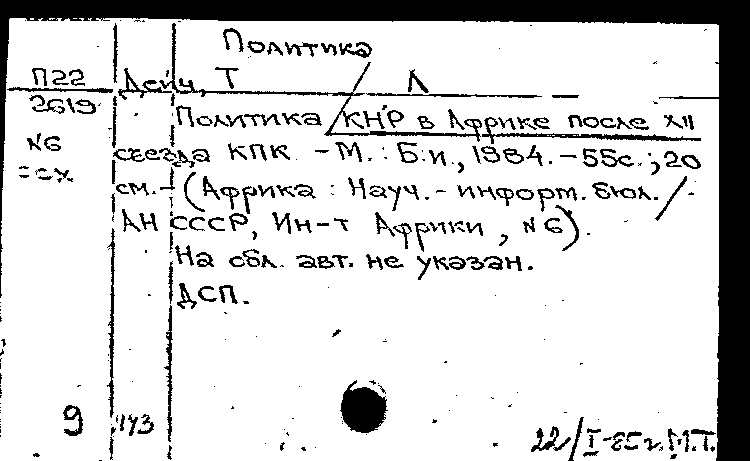 Политика
П22 Дейч, Т Л
2619 Политика КНР в Африке после XII
N6 съезда КПК - М. : Б.и., 1984. - 55с.; 20
см. - (Африка : Науч.- информ. бюл. /
АН СССР, Ин-т Африки, N6).
На обл. авт. не указан.
ДСП.
9 143 22/I-85г. М.Т.